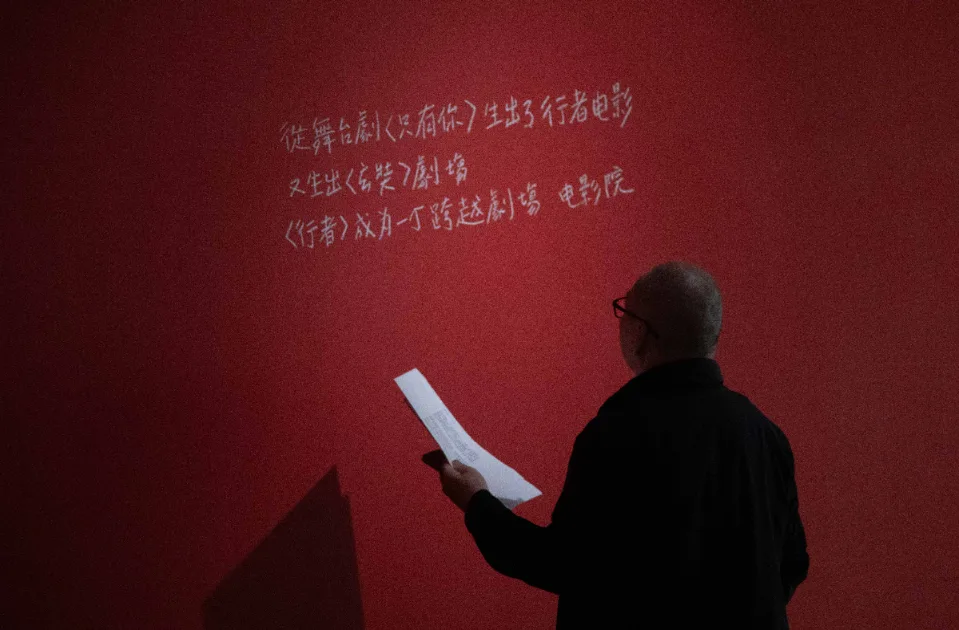 從舞台劇〈只有你〉生出了行者电影
又生出〈玄奘〉劇場
〈行者〉成为一个跨越劇場 电影院